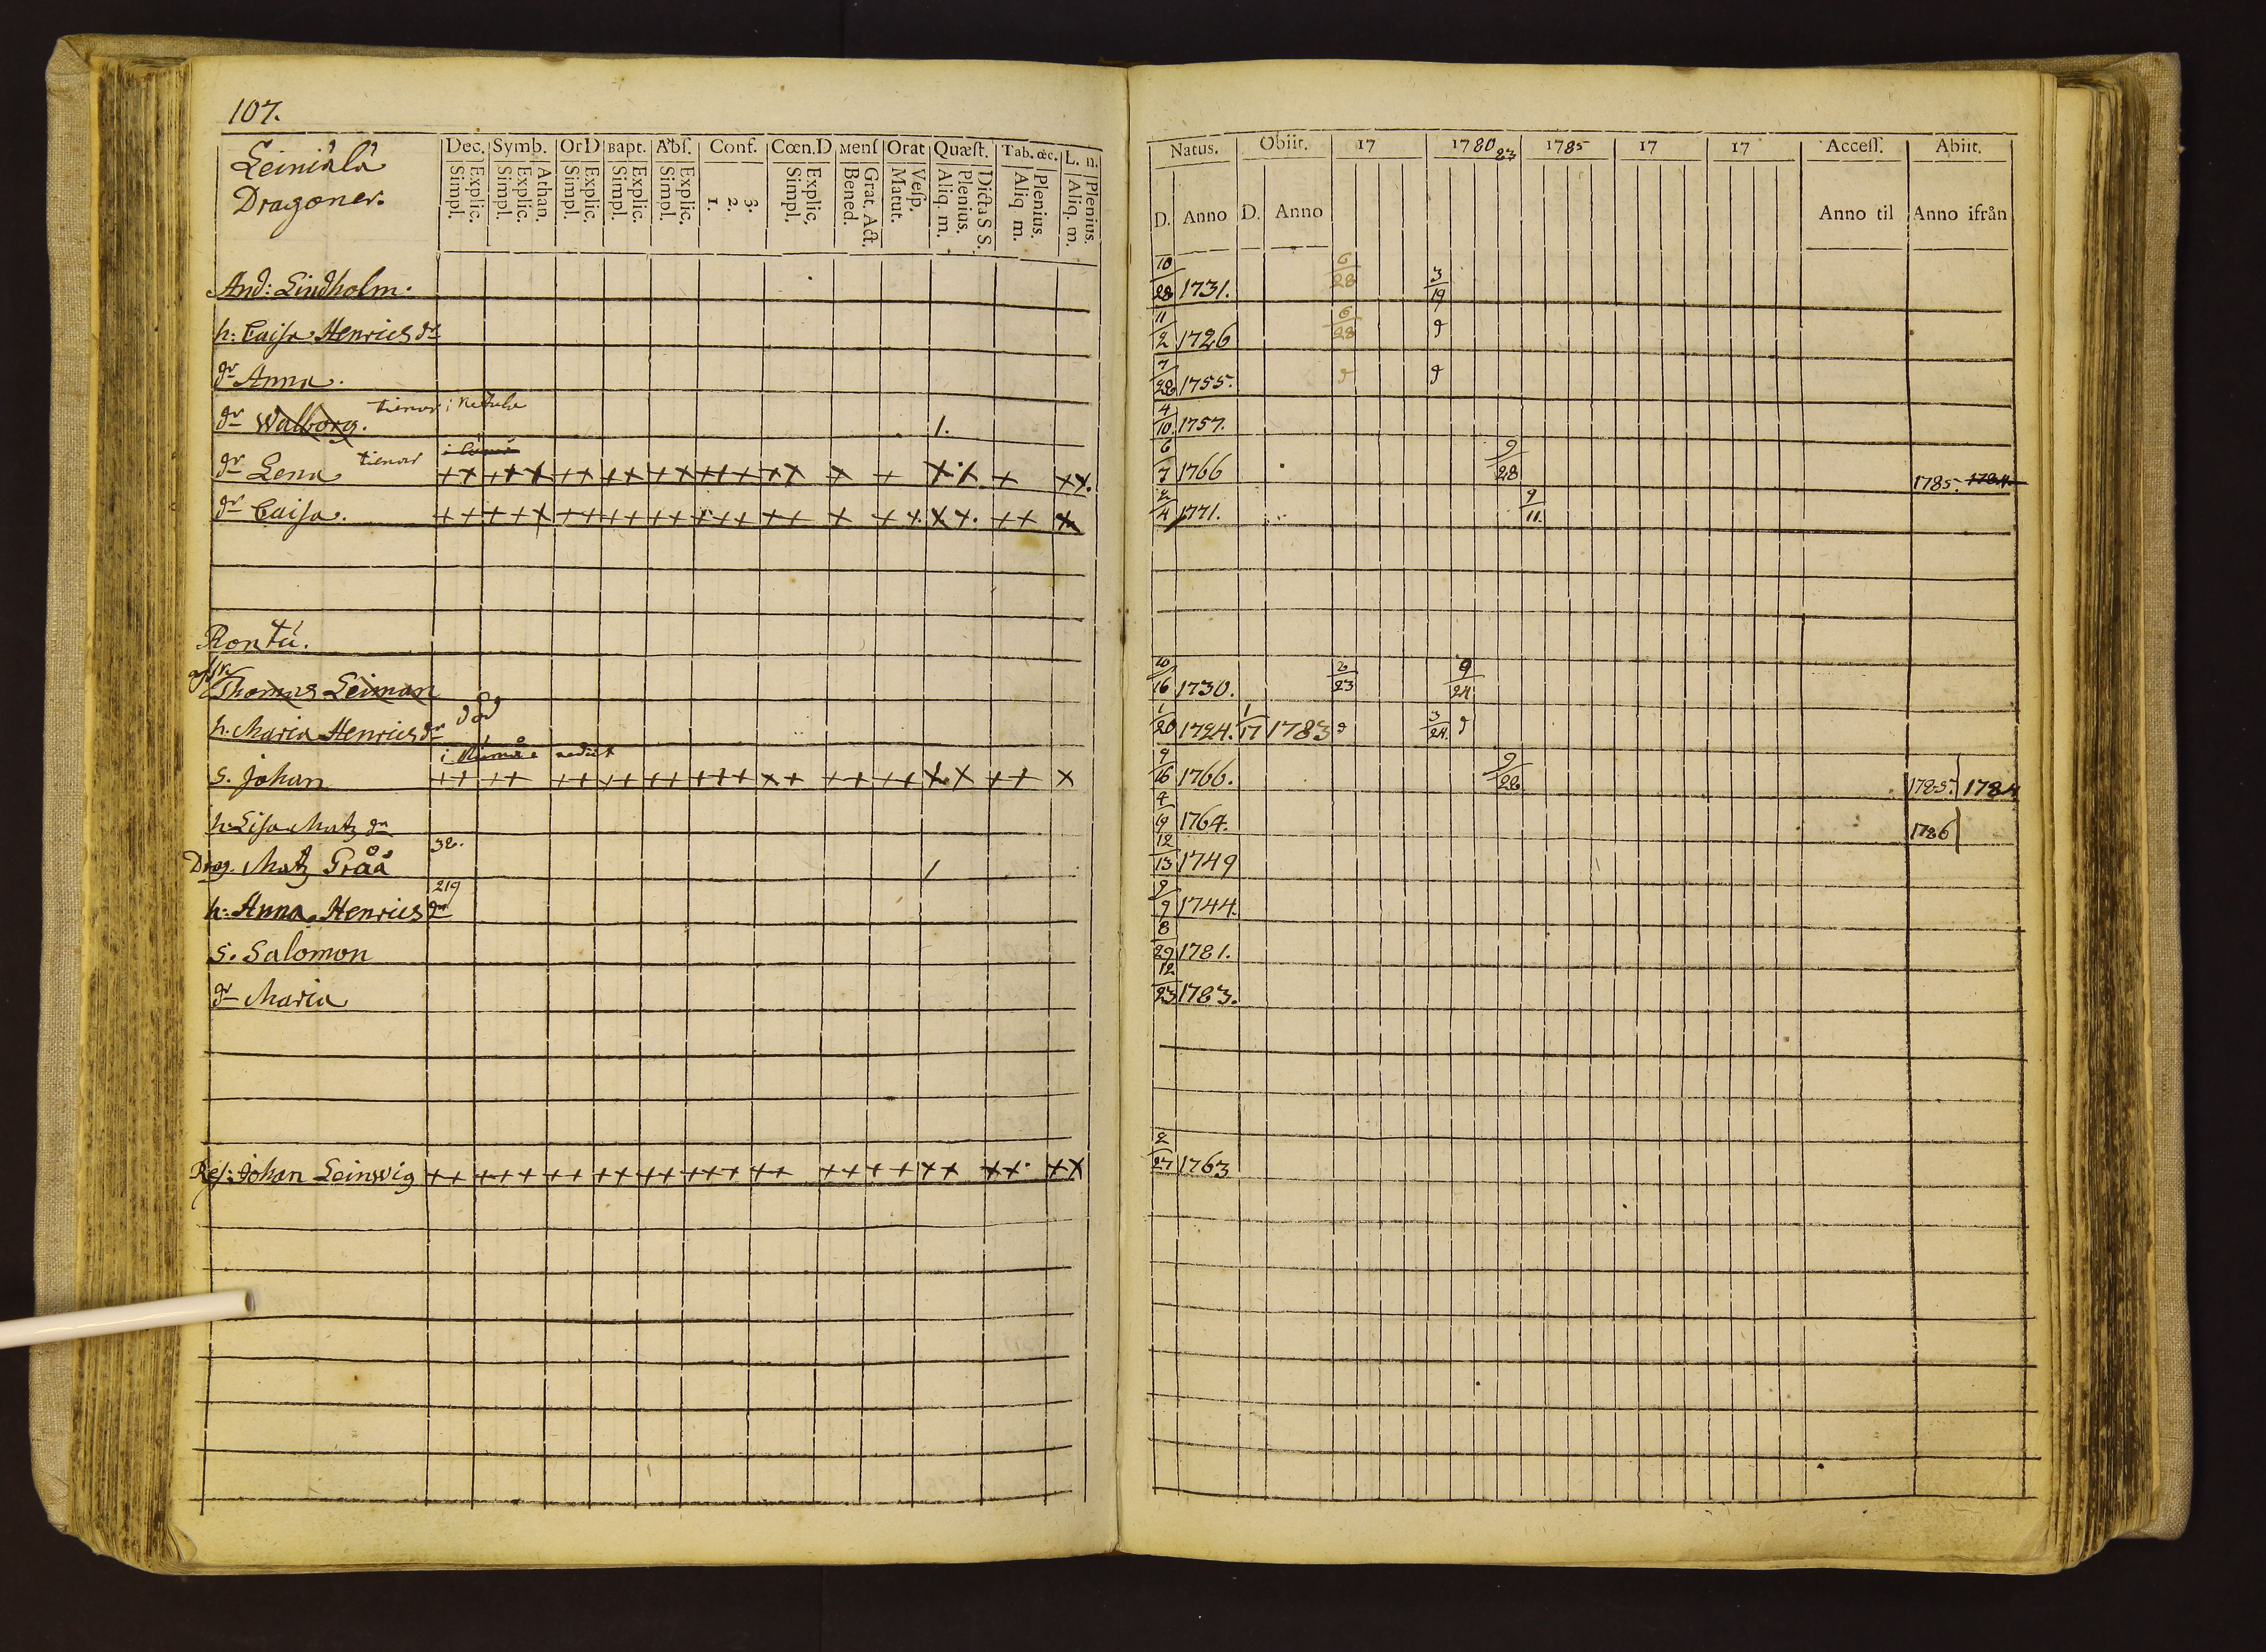 107.
Leiniälä
Dragoner.
Dec. Symb. OrD Bapt. Abſ. Conf. Cœn.D Menſ Orat Quæſt. Tab. œc. L. n.
Simpl. Explic. Simpl. Explic. Athan. Simpl. Explic. Simpl. Explic. Simpl. Explic. 1. 2. 3. Simpl. Explic. Bened. Grat. Act. Matut. Veſp. Aliq. m. Plenius. Dicta S S. Aliq. m. Plenius. Aliq. m. Plenius.
And: Lindholm.
h: Caisa Henricsdr
dr Anna.
dr Walborg. tienar i 1.
dr Lena tienar
dr Caisa.
Rontú.
Thomas Leiman
h. Maria Henricsdr död
s. Johan i rediit
h: Lisa Matsdr
Drag. Matz Gråå 32.
h: Anna Henricsdr 219
s. Salomon
dr Maria
Johan Leinwig
Natus. Obiit. 17 1780 83 1785 17 17 Acceſſ. Abiit.
D. Anno D. Anno Anno til Anno ifrån
10/28 1731. 6/28 3/19
11/2 1726 6/28 d
7/22 1755. d d
4/10 1757.
6/7 1766 9/28 1785. 1784
2/4 1771. 9/11.
10/16 1730. 2/23 9/24
1/20 1724. 1/17 1783 d 3/24. d
9/16 1766. 9/28 1785. 1784
4/19 1764. 1786
12/13 1749
9/9 1744.
8/29 1781.
12/23 1783.
2/27 1763